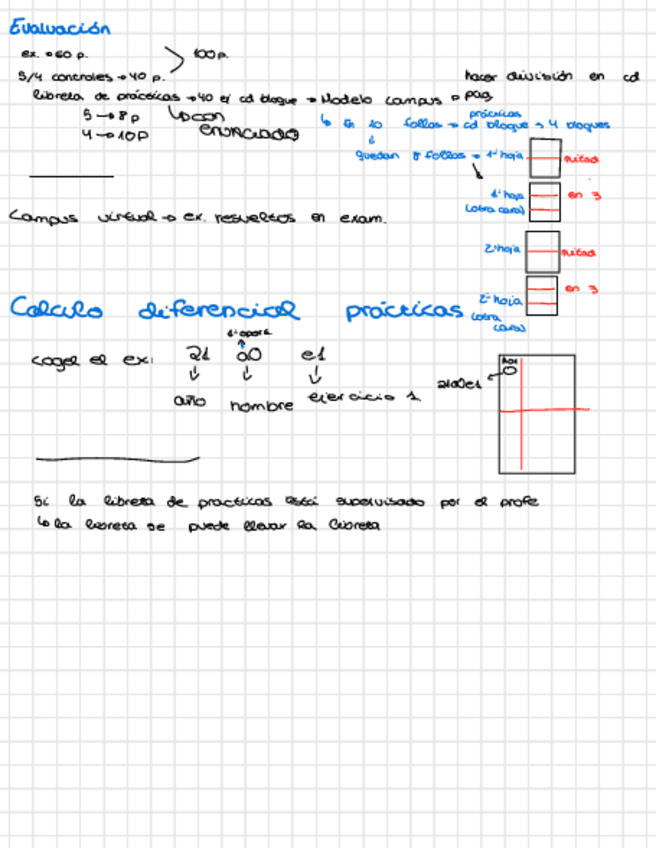 Evaluación
ex. → 60 p.
100 p.
5/4 controles → 40 p.
hacer división en cd pag
libreta de prácticas → 40 ej cd bloque → Modelo campus
5 → 8 p
↳ con enunciado
4 → 10 p
prácticas
↳ En 10 follos → cd bloque → 4 bloques
↓
quedan 8 follos → 1ª hoja
mitad
1ª hoja (otra cara)
en 3
Campus virtual → ex. resueltos en exam.
2ª hoja
mitad
2ª hoja (otra cara)
en 3
Calculo diferencial prácticas
coger el ex:
21 e1
↓ ↓ ↓
año nombre ejercicio 1
Si la libreta de practicas está supervisado por el profe
↳ la libreta se puede llevar la libreta